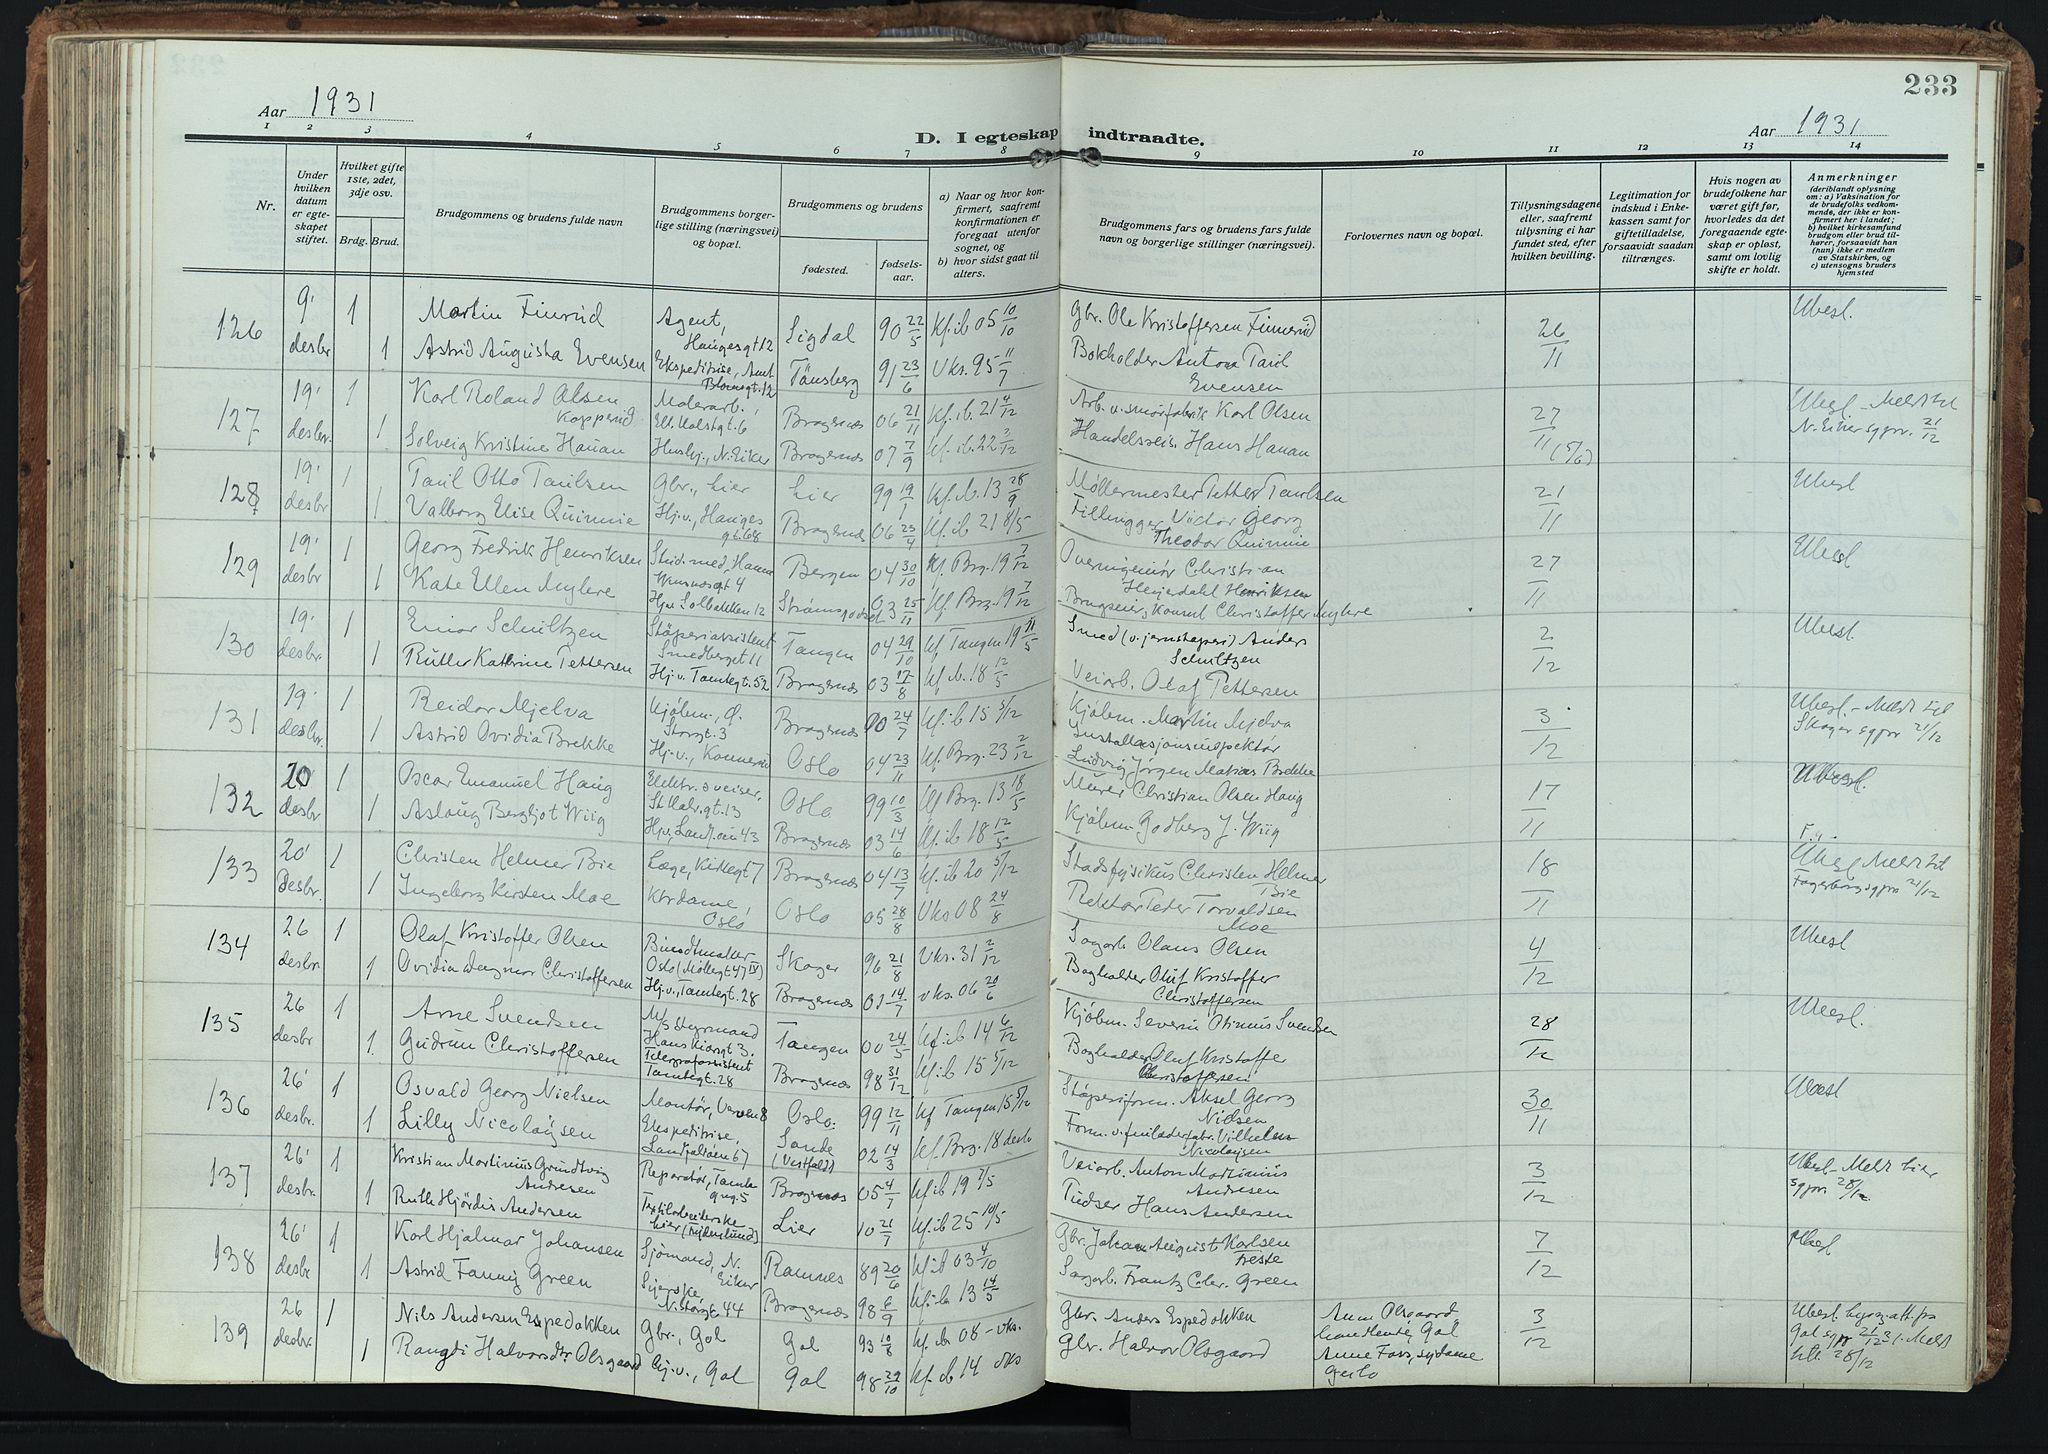 233
Aar 1931
Aar 1931
D. I egteskap indtraadte.
1 2 3 4 5 6 7 8 9 10 11 12 13 14
Nr.
Under hvilken datum er egte- skapet stiftet.
Hvilket gifte 1ste, 2det, 3dje osv.
Brdg. Brud.
Brudgommens og brudens fulde navn
Brudgommens borger- lige stilling (næringsvei) og bopæl.
Brudgommens og brudens
fødested.
fødsels- aar.
a) Naar og hvor kon- firmert, saafremt konfirmationen er foregaat utenfor sognet, og
b) hvor sidst gaat til alters.
Brudgommens fars og brudens fars fulde navn og borgerlige stillinger (næringsvei).
Forlovernes navn og bopæl.
Tillysningsdagene eller, saafremt tillysning ei har fundet sted, efter hvilken bevilling.
Legitimation for indskud i Enke- kassen samt for giftetilladelse, forsaavidt saadan tiltrænges.
Hvis nogen av brudefolkene har været gift før, hvorledes da det foregaaende egte- skap er opløst, samt om lovlig skifte er holdt.
Anmerkninger (deriblandt oplysning om: a) Vaksination for de brudefolks vedkom- mende, der ikke er kon- firmert her i landet; b) hvilket kirkesamfund brudgom eller brud til- hører, forsaavidt han (hun) ikke er medlem av Statskirken, og c) utensogns bruders hjemsted
126 9' desbr 1 Martin Finrud Agent, Haugesgt 12 Sigdal 90 22/5 kf. ib 05 10/10 Gbr. Ole Kristoffersen Finnerud 26/11 Ubesl.
1 Astrid Augusta Evensen Ekspeditrise, Amt. gt. 12 Tønsberg 91 23/6 Vks. 95 11/7 Bokholder Anton Paul Evensen
127 19' desbr. 1 Karl Roland Olsen Kopperud Malerarb., gt. 6 Bragernæs 06 21/11 kf. ib. 21 4/12 Arb. v. smørfabrik Karl Olsen 27/11 (5/6) Ubesl. - Meldt til N. Eiker sgpr. 21/12
1 Solveig Kristine Hauan Husbj., N. Eiker Bragernæs 07 7/9 kf. ib. 22 2/12 Handelsreis. Hans Hauan
128 19' desbr 1 Paul Otto Paulsen Gbr., Lier Lier 99 19/1 kf. ib. 13 28/9 Møllermester Petter Paulsen 21/11 Ubesl
1 Valborg Elise Quinnie Hj.v., Hauges gt. 68 Bragernæs 06 23/4 kf. ib 21 8/5 Victor Georg Theodor Quinnie
129 19' desbr 1 Georg Fredrik Henriksen Stud. med., gt 4 Bergen 04 30/10 kf. Brg. 19 7/12 Overingeniør Christian Heyerdahl Henriksen 27/11 Ubesl
1 Kate Ellen Myhre Hjv. Solbakken 12 Strømsgodset 03 25/11 kf. Brg. 19 7/12 Brugseier, Konsul Christoffer Myhre
130 19' desbr. 1 Einar Schultzen Støperiassistent Smedbergt 11 Tangen 04 29/10 kf Tangen 19 11/5 Smed (v. jernstøperi) Anders Schultzen 2/12 Ubesl.
1 Ruth Kathrine Pettersen Hj.v. Tomtegt. 52 Bragernæs 03 17/8 kf ib. 18 12/5 Veiarb. Olaf Pettersen
131 19' desbr. 1 Reidar Mjelva Kjøbm., Ø. Storgt. 3 Bragernæs 00 24/7 kf. ib 15 5/12 Kjøbm. Martin Mjelva 3/12 Ubesl. - Meldt til Skoger sgpr 21/12
1 Astrid Ovidia Brekke Hj.v., Konnerud Oslo 04 23/11 kf Brg. 23 2/12 Installasjonsinspektør Ludvig Jørgen Matias Brekke
132 20 desbr 1 Oscar Emanuel Haug Elektr. sveiser, St. Halv. gt. 13 Oslo 99 10/3 kf Brg. 13 18/5 Murer, Christian Olsen Haug 17/11 Ubesl.
1 Aslaug Bergljot Wiig Hj.v. Landf. øin 43 Bragernæs 03 14/6 kf. ib 18 12/5 Kjøbm. Godberg J. Wiig
133 20' desbr. 1 Christen Helmer Bie Læge, Kirkegt 7 Bragernæs 04 13/7 kf. ib 20 5/12 Stadsfysikus Christen Helmer Bie 18/11 Ubesl Meldt til Fagerborg sgpr 21/12
1 Ingeborg Kirsten Moe Ktrdame, Oslo Oslo 05 28/8 Vks 08 24/8 Rektor Peder Torvaldsen Moe
134 26 desbr. 1 Olaf Kristoffer Olsen Oslo (Møllegt 47 IV) Skoger 96 21/8 Vks. 31 2/12 Sagarb. Olaus Olsen 4/12 Ubesl
1 Ovidia Dagmar Christoffersen Hj.v., Tomtegt. 28 Bragernæs 01 14/7 vks. 06 20/6 Boghalder Oluf Kristoffer Christoffersen
135 26 desbr 1 Arne Svendsen M/s styrmand Hans Kiærsgt 3. Tangen 00 24/5 kf. ib 14 6/12 Kjøbm. Severin Otinius Svendsen 28/12 Ubesl.
1 Gudrun Christoffersen Telegrafassistent Tomtegt. 28 Bragernæs 98 31/12 kf. ib 15 5/12 Boghalder Oluf Kristoffer Christoffersen
136 26' desbr. 1 Osvald Georg Nielsen Montør, Verven 8 Oslo. 99 12/11 kf Tangen 15 5/12 Støperiform. Aksel Georg Nielsen 30/11 Ubesl
1 Lilly Nicolaysen Ekspeditrise, Landfaløen 67 Sande (Vestfold) 02 14/3 kf. Brg. 18 desbr Form. v. Vilhelm Nicolaysen
137 26' desbr. 1 Kristian Martinius Grundtvig Andresen Reparatør, Tomte g. 5 Bragernæs 05 4/7 kf ib 19 2/5 Veiarb. Anton Martinius Andresen 3/12 Ubesl - Meldt Lier sgpr. 28/12
1 Ruth Hjørdis Andersen Textilarbeiderske Lier Lier 10 21/7 kf. ib 25 10/5 Pudser Hans Andersen
138 26' desbr 1 Karl Hjalmar Johansen Sjømand, N. Eiker Ramnes 89 20/6 kf. ib 03 4/10 Gbr. Johan August Karlsen Freste 7/12 Ubesl
1 Astrid Fanny Green Syerske, N. Storgt. 44 Bragernæs 98 6/9 kf. ib 13 14/5 Sagarb. Frantz Chr. Green
139 26 desbr. 1 Nils Andersen Espedokken Gbr., Gol Gol 93 10/8 kf. ib 08 - vks. Gbr. Anders Espedokken Anne Olsgaard, Gol 3/12 Ubesl. Gol sgpr 21/12 31. Meldt 28/12
1 Rangdi Halvorsdtr. Olsgaard Hj.v., Gol Gol 98 29/10 kf. ib 14 vks Gbr. Halvor Olsgaard Anne Foss, sydame Geilo